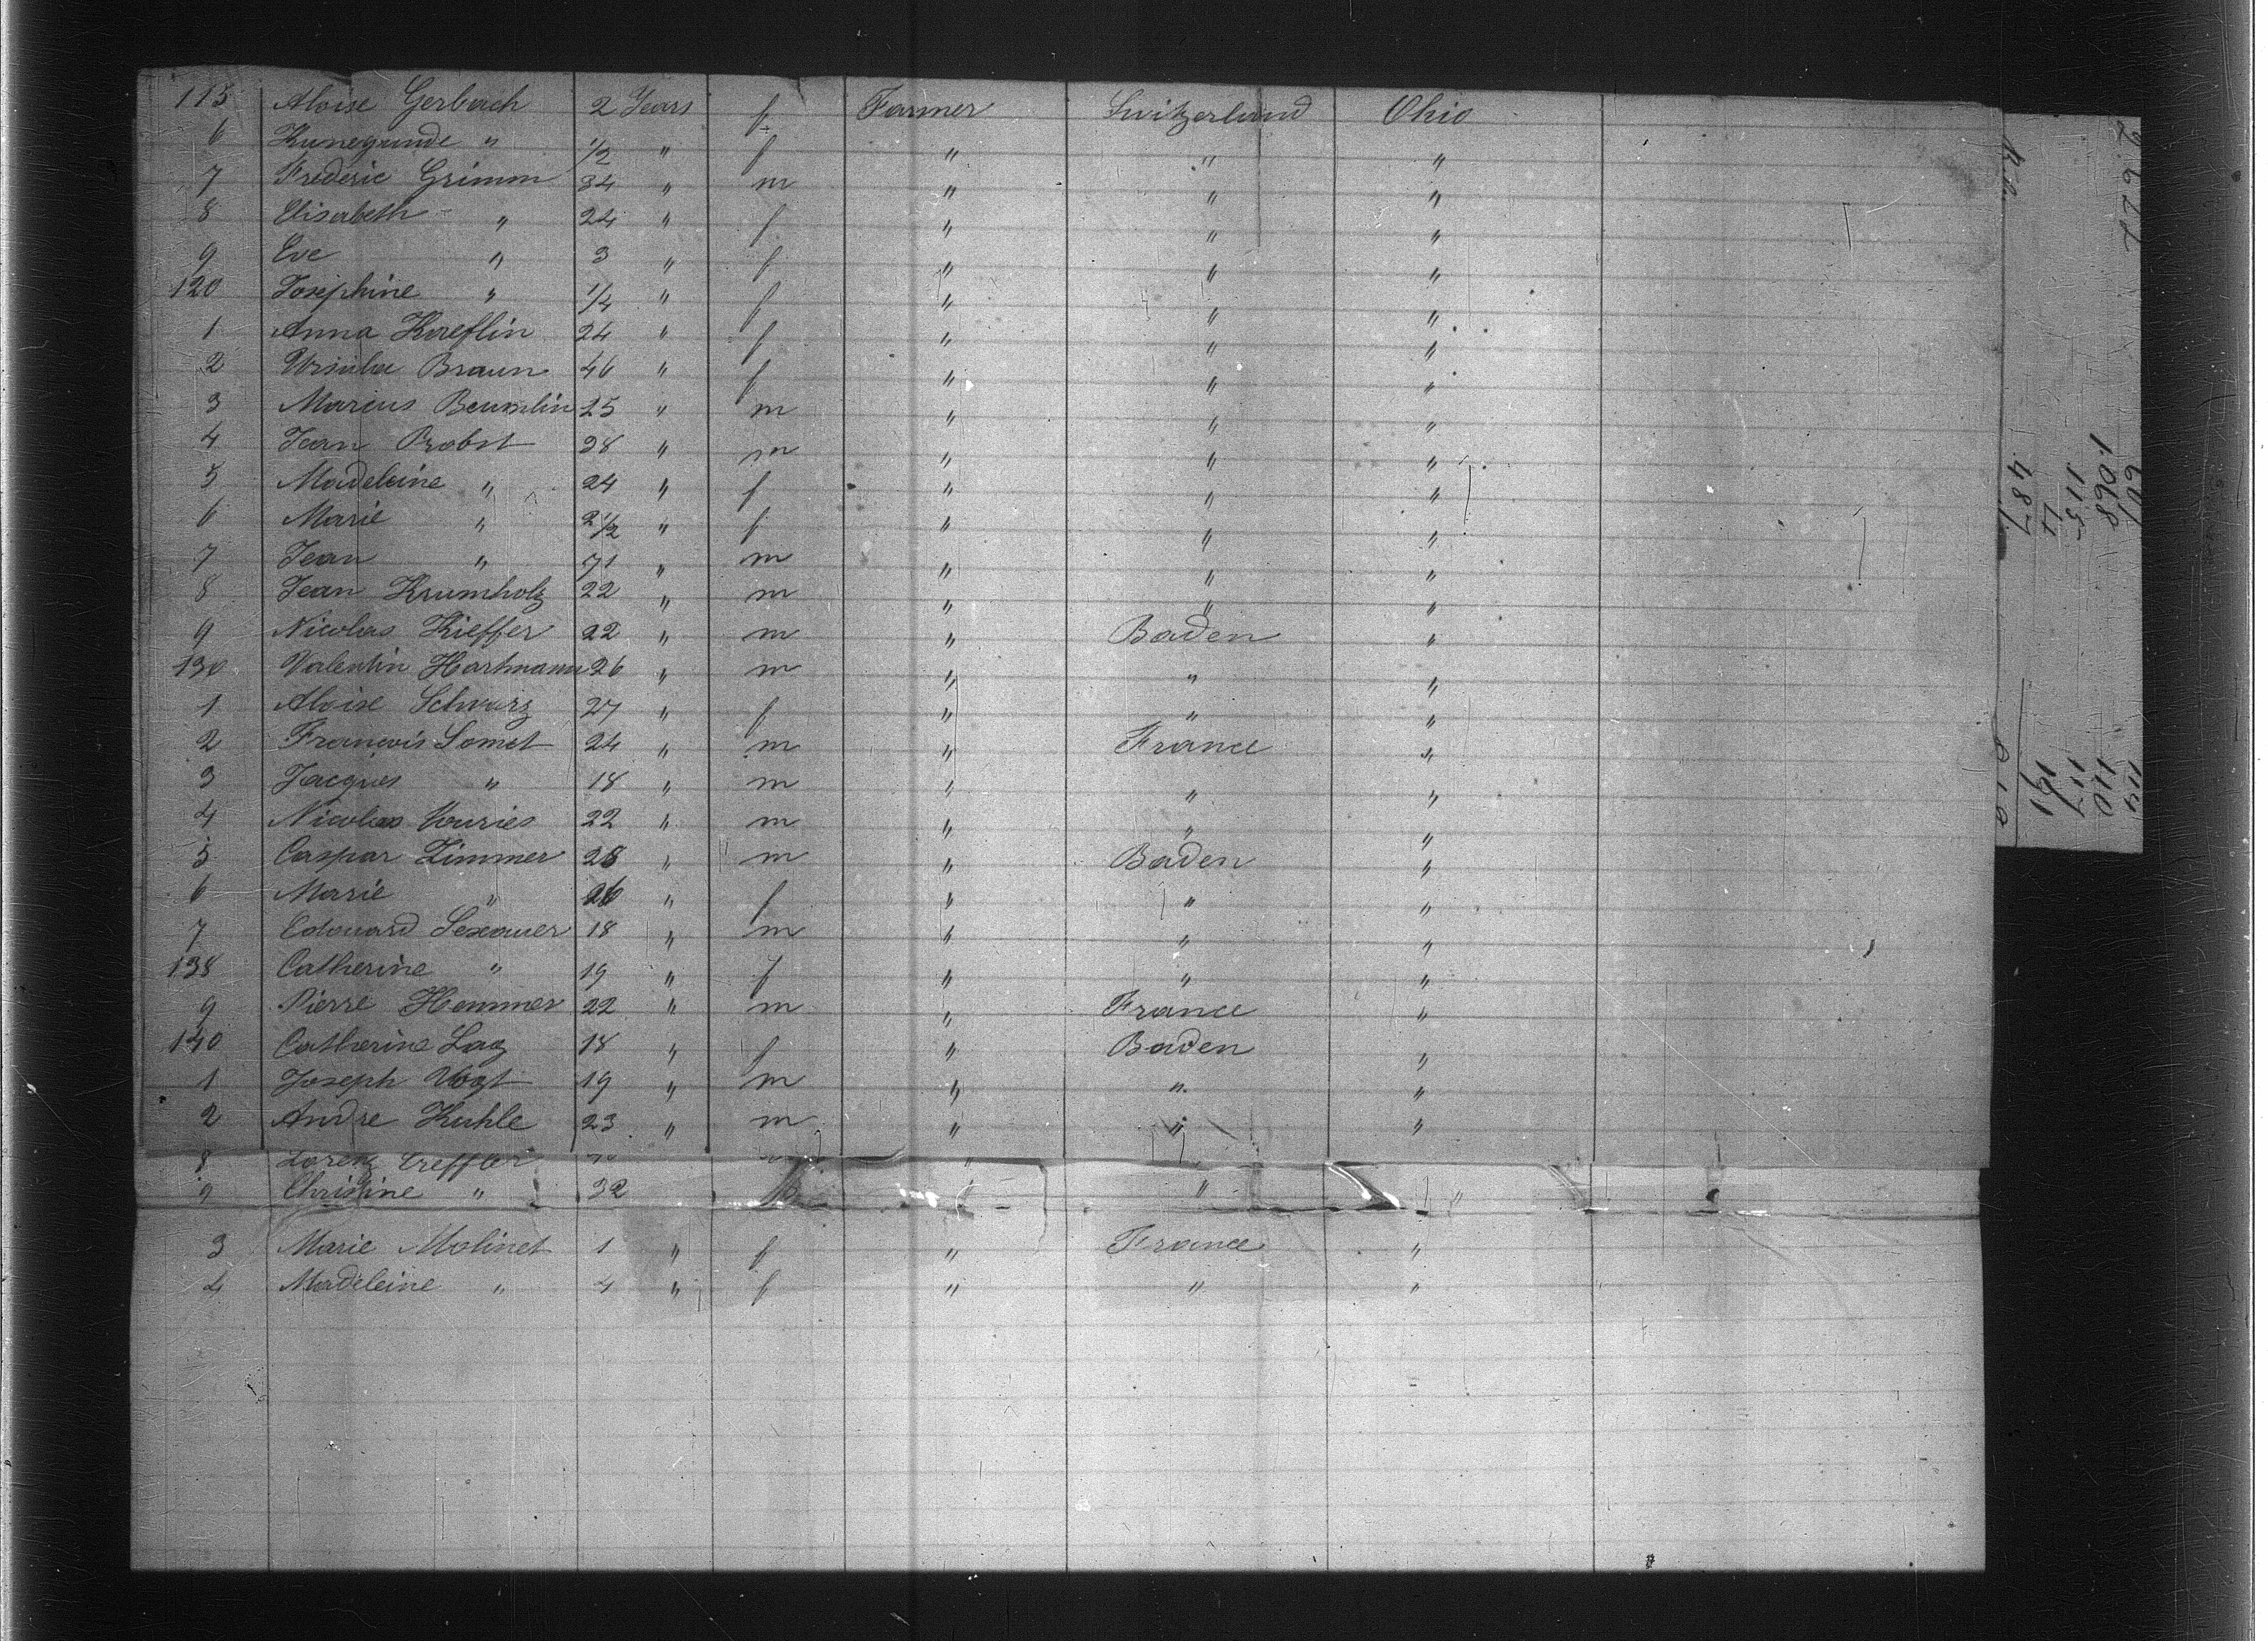 115 Aloise Gerbach 2 Years f Farmer Switzerland Ohio
6 Kunegunde " 1/2 " f " " "
7 Frederic Grimm 34 " m " " "
8 Elisabeth " 24 " f " " "
9 Eve " 3 " f " " "
120 Josephine " 1/4 " f " " "
1 Anna Kaeflin 24 " f " " "
2 Ursula Braun 46 " f " " "
3 Marcus Beumlin 25 " m " " "
4 Jean Probst 38 " m " " "
5 Madeleine " 24 " f " " "
6 Marie " 2 1/2 " f " " "
7 Jean " 71 " m " " "
8 Jean Krumholz 22 " m " " "
9 Nicolas Kieffer 22 " m " Baden "
130 Valentin Hartmann 26 " m " " "
1 Aloise Schwarz 27 " f " " "
2 Francois Somet 24 " m " France "
3 Jacques " 18 " m " " "
4 Nicolas Vouries 22 " m " " "
5 Caspar Zimmer 28 " m " Baden "
6 Marie " 26 " f " " "
7 Edouard Sexauer 18 " m " " "
138 Catherine " 19 " f " " "
9 Pierre Hemmer 22 " m " France "
140 Catherine Lag 18 " f " Baden "
1 Joseph Vogt 19 " m " " "
2 Andre Kuhle 23 " m " " "
8 Lorenz Treffler "
9 Christine " 32 " " "
3 Marie Molinet 1 " f " France "
4 Madeleine " 4 " f " " "
487
115
1068
191
117
110